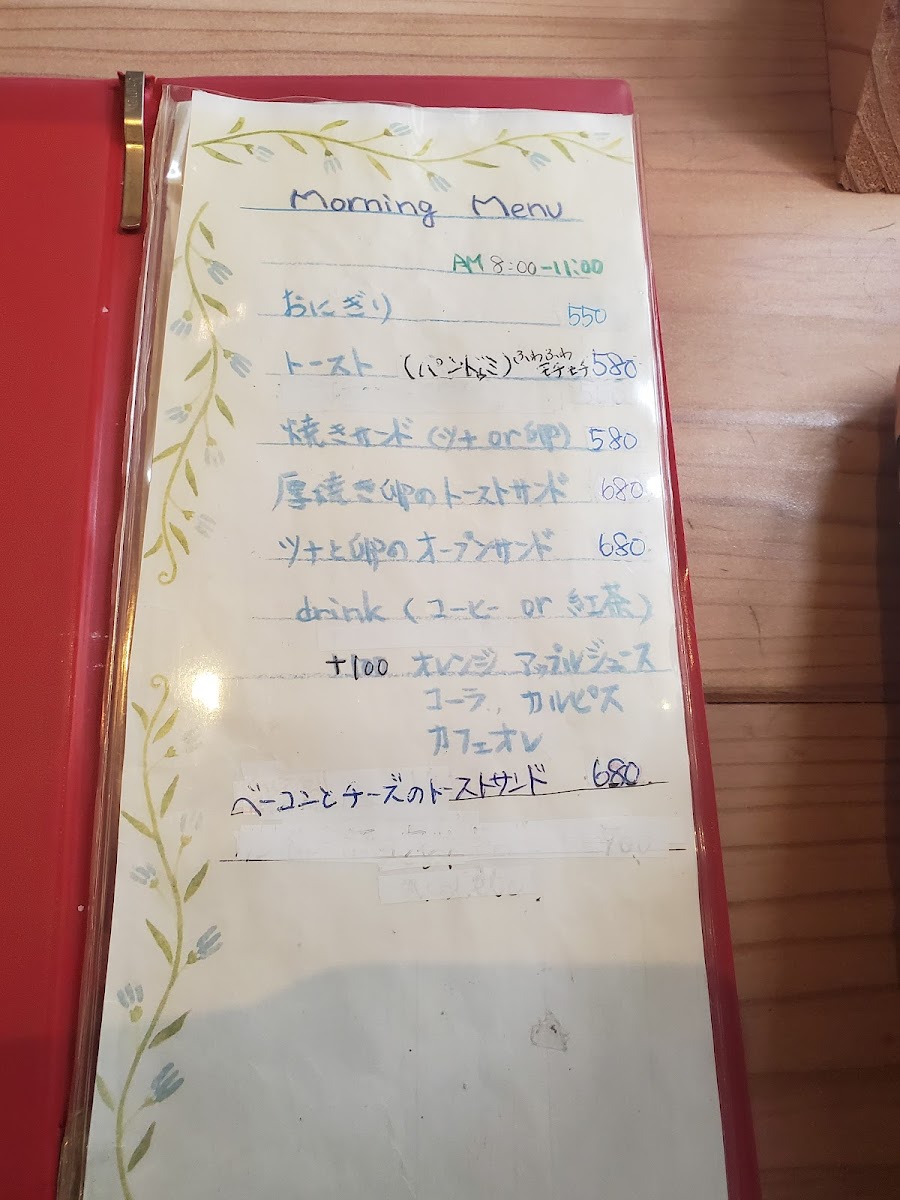 Morning Menu
AM 8:00-11:00
おにぎり 550
トースト (パンドゥミ) ふわふわ モチモチ 580
焼きサンド (ツナ or 卵) 580
厚焼き卵のトーストサンド 680
ツナと卵のオープンサンド 680
drink (コーヒー or 紅茶)
+100 オレンジ アップルジュース
コーラ, カルピス
カフェオレ
ベーコンとチーズのトーストサンド 680